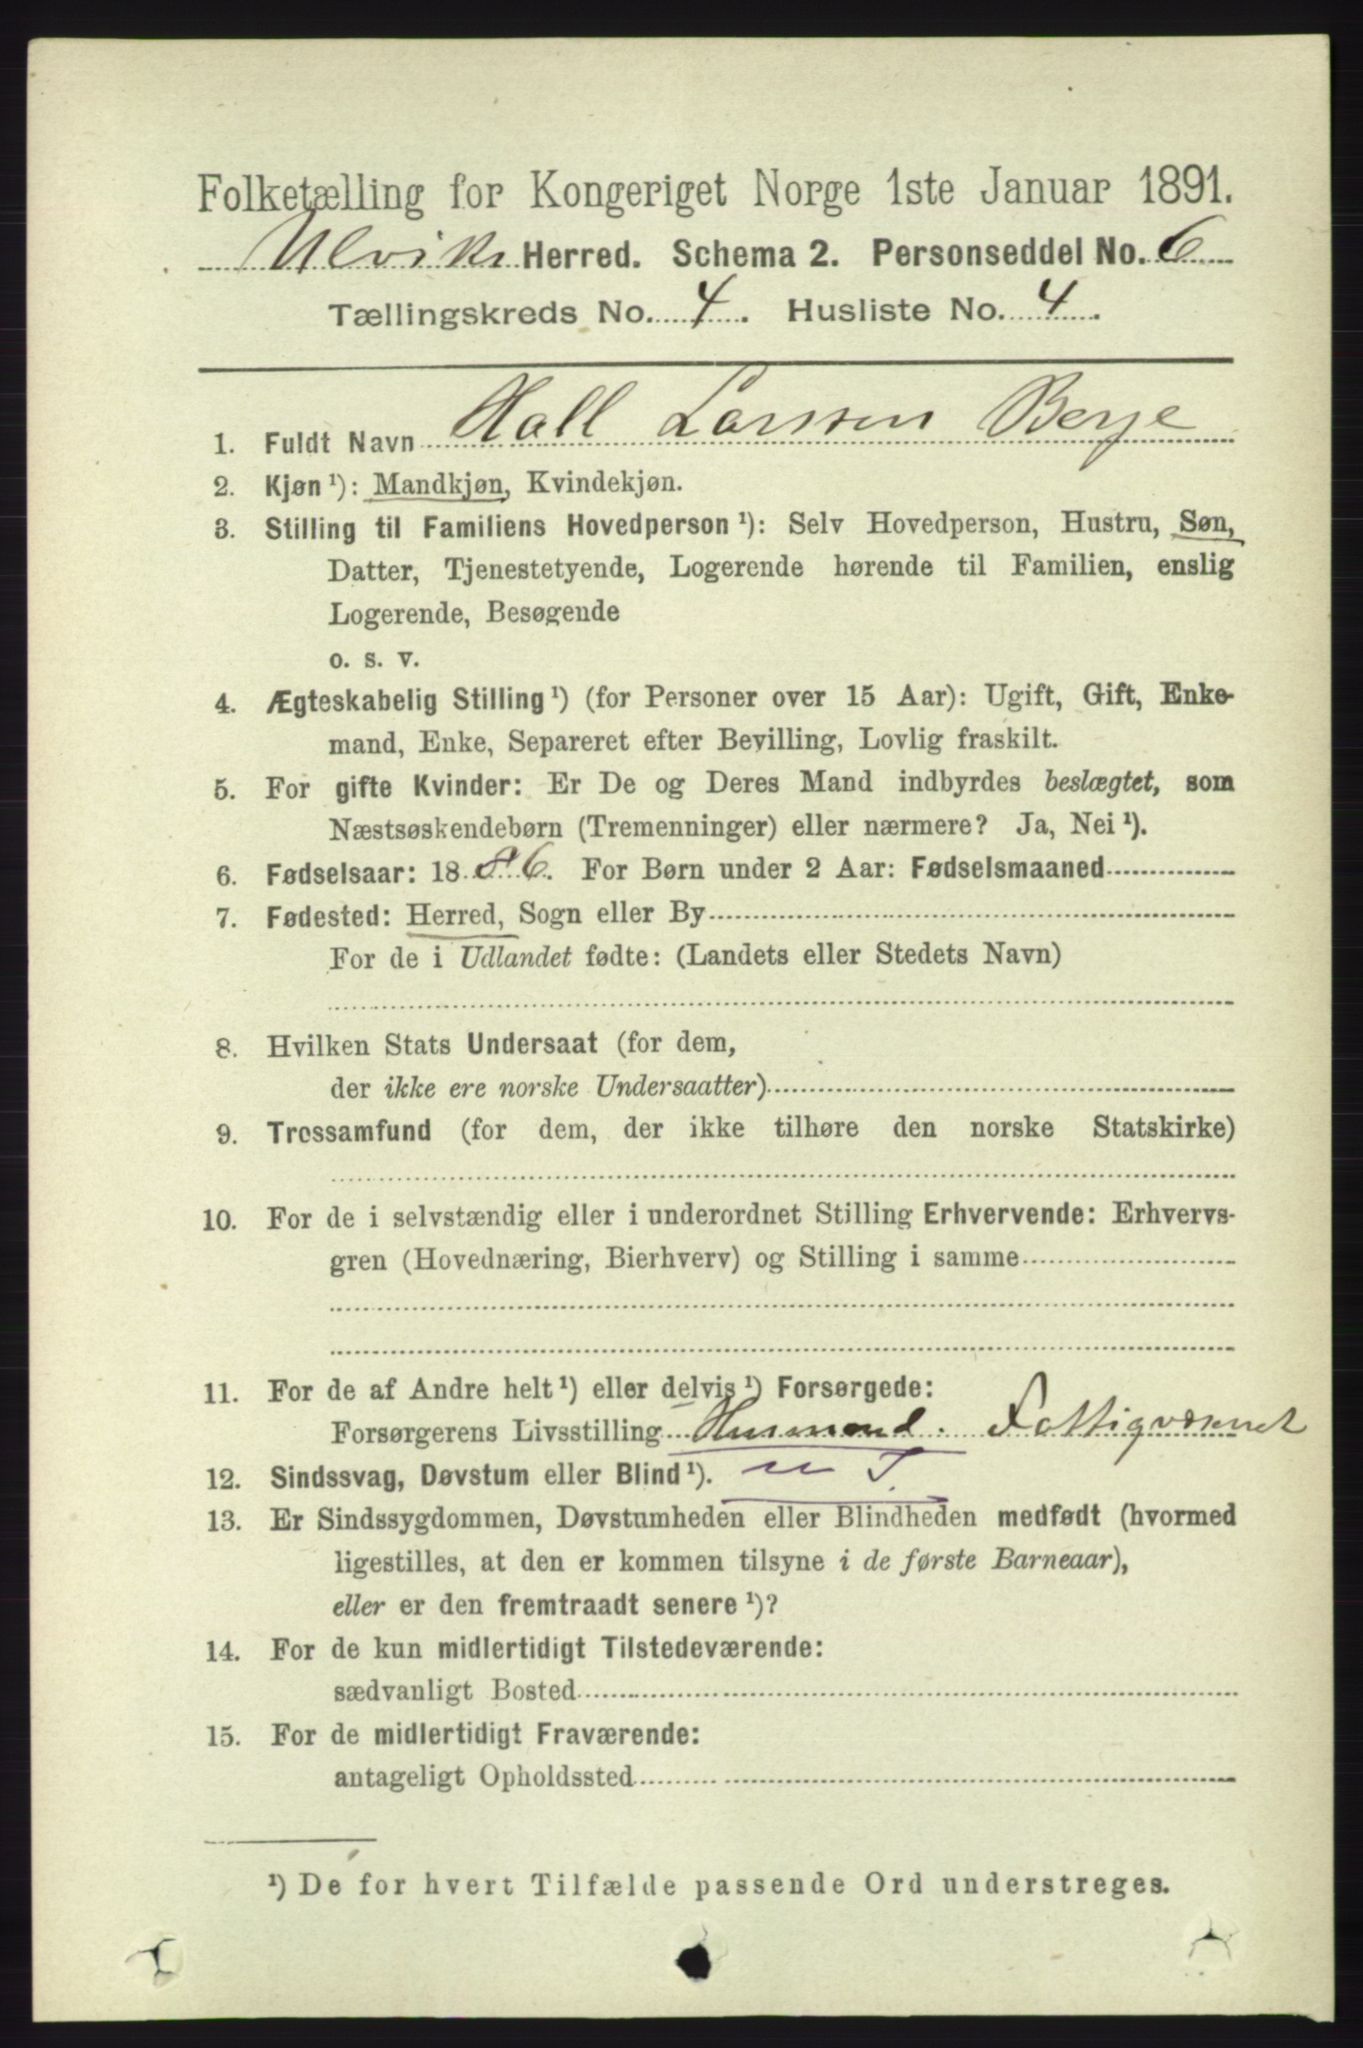 Folketælling for Kongeriget Norge 1ste Januar 1891.
Ulvik Herred. Schema 2. Personseddel No. 6
Tællingskreds No. 4. Husliste No. 4.
1. Fuldt Navn Hall Larssen Berje
2. Kjøn ¹): Mandkjøn, Kvindekjøn.
3. Stilling til Familiens Hovedperson ¹): Selv Hovedperson, Hustru, Søn,
Datter, Tjenestetyende, Logerende hørende til Familien, enslig
Logerende, Besøgende
o. s. v.
4. Ægteskabelig Stilling ¹) (for Personer over 15 Aar): Ugift, Gift, Enke-
mand, Enke, Separeret efter Bevilling, Lovlig fraskilt.
5. For gifte Kvinder: Er De og Deres Mand indbyrdes beslægtet, som
Næstsøskendebørn (Tremenninger) eller nærmere? Ja, Nei ¹).
6. Fødselsaar: 1886. For Børn under 2 Aar: Fødselsmaaned
7. Fødested: Herred, Sogn eller By
For de i Udlandet fødte: (Landets eller Stedets Navn)
8. Hvilken Stats Undersaat (for dem,
der ikke ere norske Undersaatter)
9. Trossamfund (for dem, der ikke tilhøre den norske Statskirke)
10. For de i selvstændig eller i underordnet Stilling Erhvervende: Erhvervs-
gren (Hovednæring, Bierhverv) og Stilling i samme
11. For de af Andre helt ¹) eller delvis ¹) Forsørgede:
Forsørgerens Livsstilling Husmand. Fattigvæsenet
12. Sindssvag, Døvstum eller Blind ¹).
13. Er Sindssygdommen, Døvstumheden eller Blindheden medfødt (hvormed
ligestilles, at den er kommen tilsyne i de første Barneaar),
eller er den fremtraadt senere ¹)?
14. For de kun midlertidigt Tilstedeværende:
sædvanligt Bosted
15. For de midlertidigt Fraværende:
antageligt Opholdssted
¹) De for hvert Tilfælde passende Ord understreges.